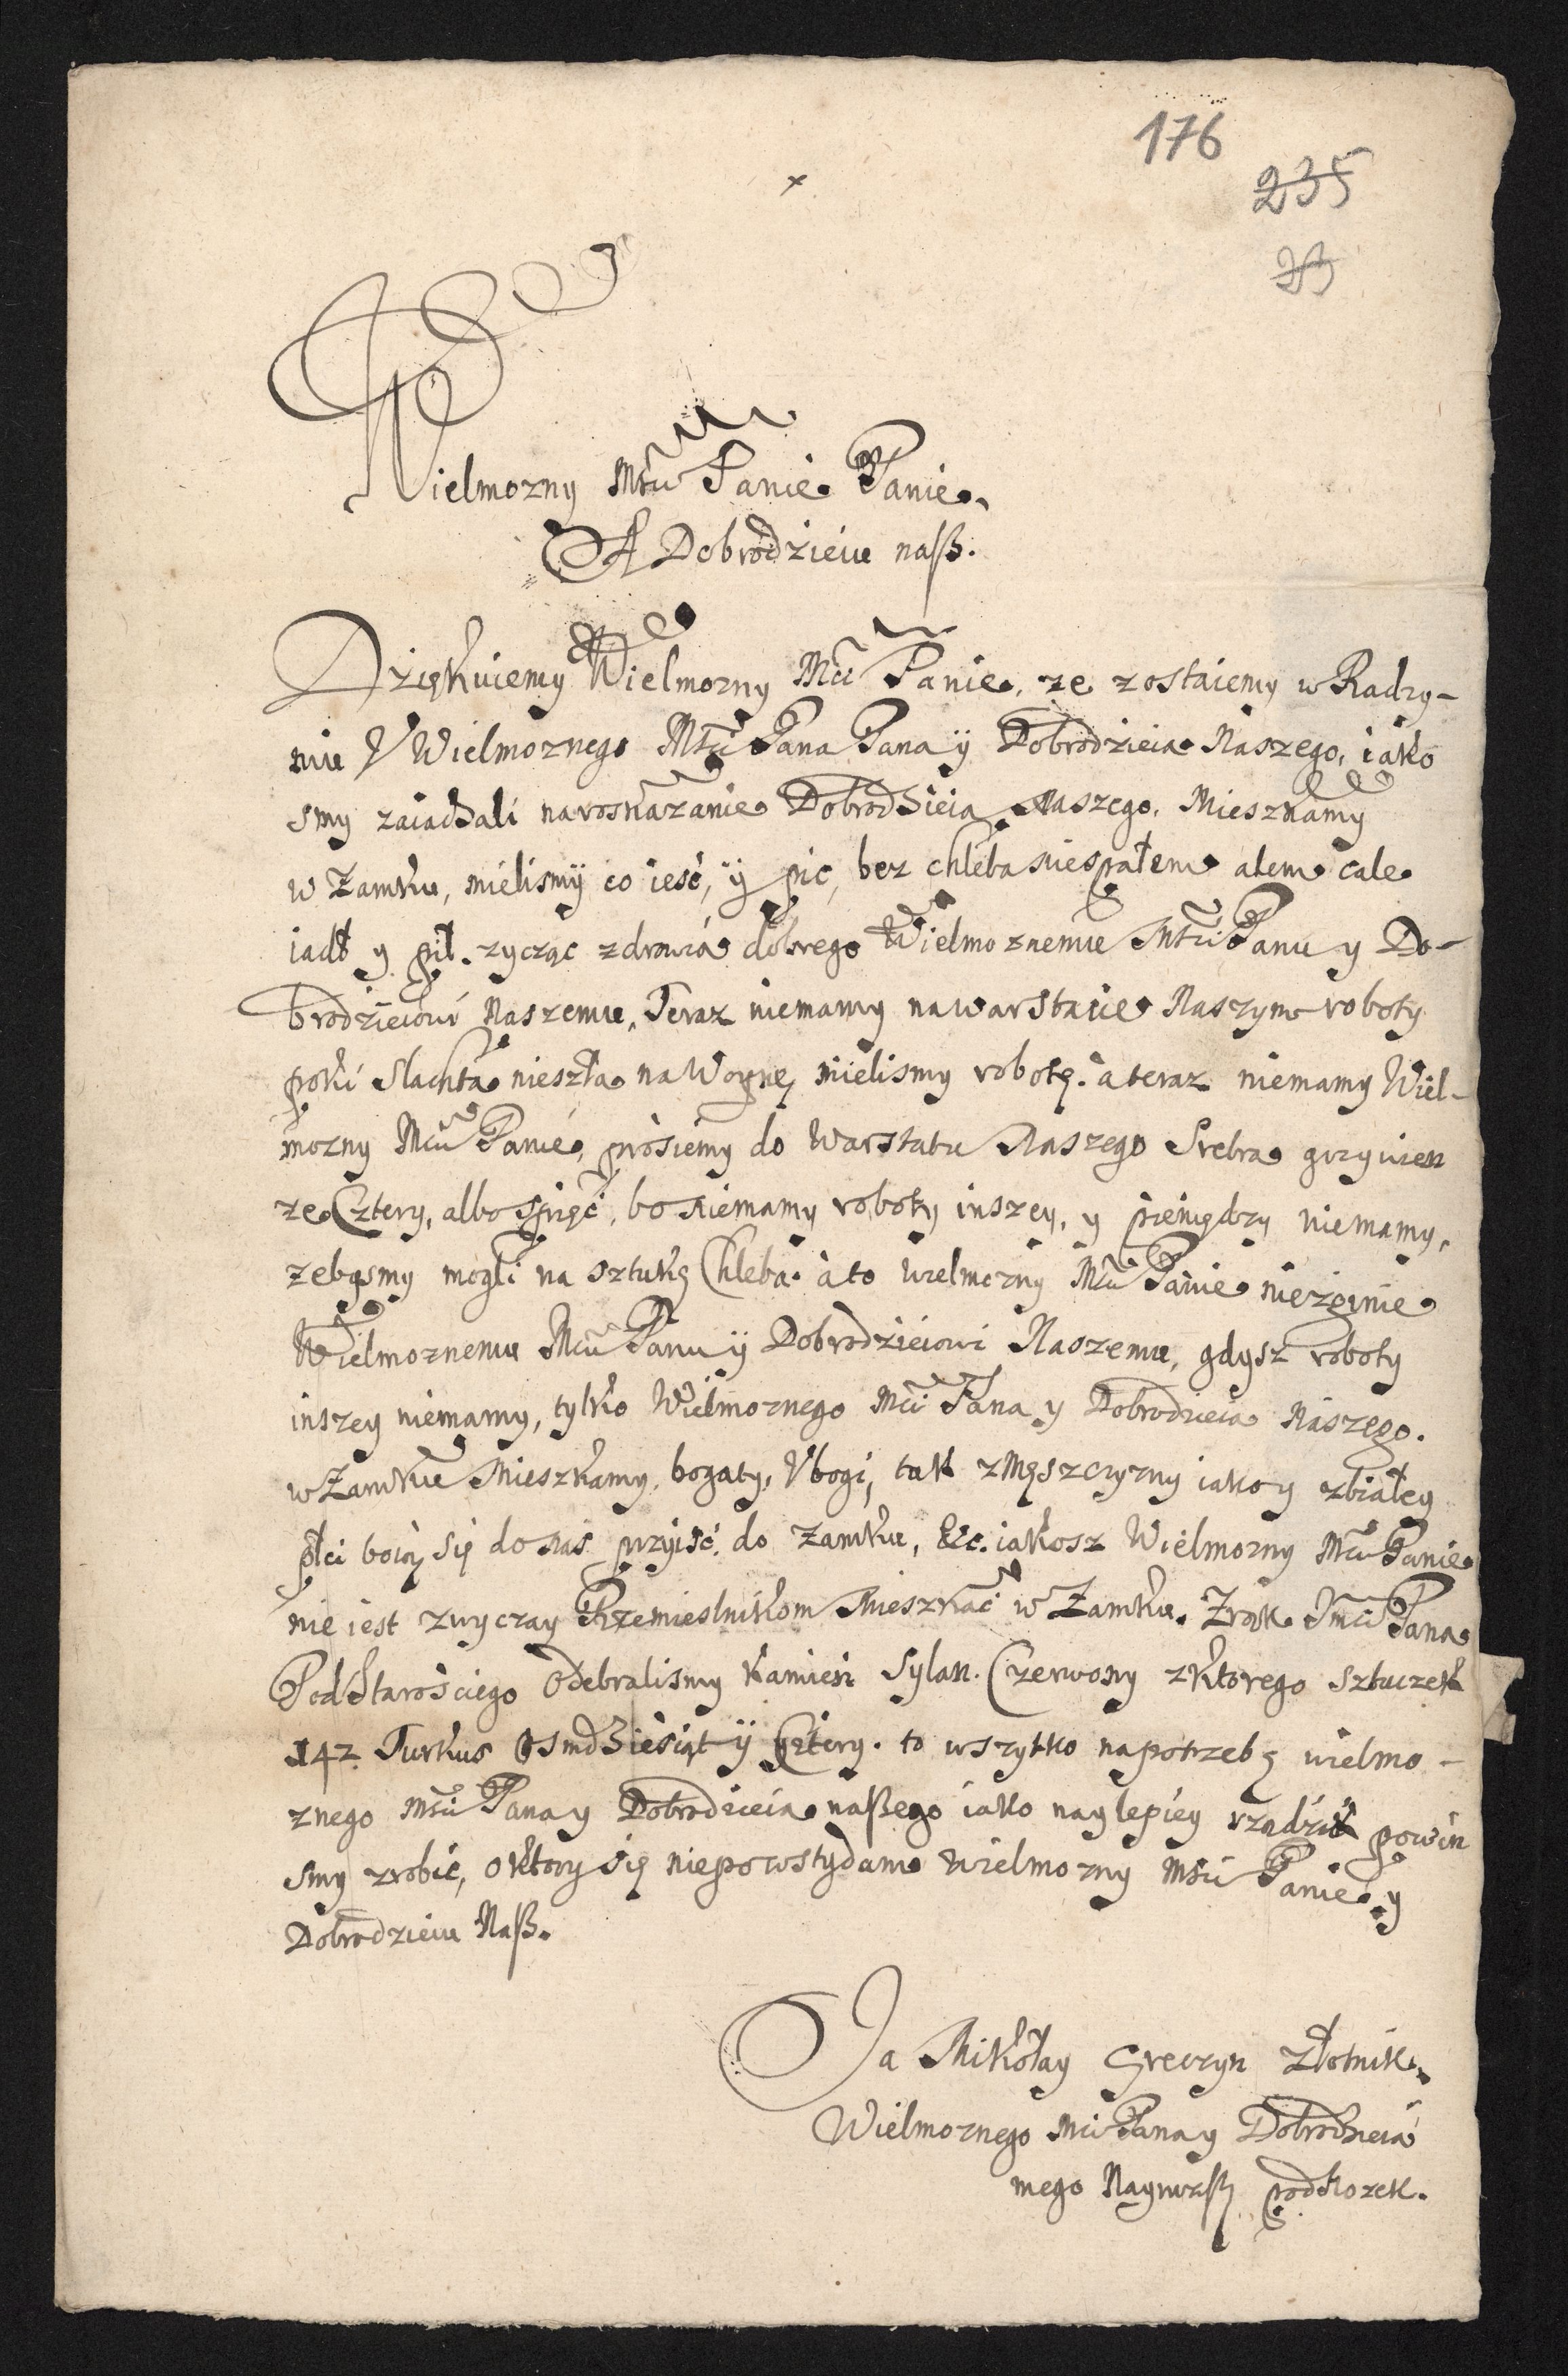 176
235
Wielmozny Mśći Panie Panie
A Dobrodzieiu naß.
Dziękuiemy Wielmozny Mći Panie, ze zostaiemy w Radzy-
niu V Wielmoznego Mśći Pana Pana ÿ Dobrodzieia Naszego, iako
smy zaiachali na roskazanie Dobrodzieia Naszego. Mieszkamy
w Zamku, mielismÿ co ieść, ÿ pić, bez chleba niespałem alem cale
iadł y pił. zycząc zdrowia dobrego Wielmoznemu Mśći Panu y Do-
brodzieiowi Naszemu, Teraz niemamy na warstacie Naszym roboty
poki Slachta nieszła na Woynę mielismy robotę. a teraz niemamy Wiel-
mozny Mći Panie, prosiemy do Warstatu Naszego Srebra grzywien
ze Cztery, albo s pięć, bo niemamy roboty inszey, y pieniędzy niemamy,
zebysmy mogli na sztukę Chleba. a to wielmozny Mći Panie niezginie
Wielmoznemu Mći Panu ÿ Dobrodzieiowi Naszemu, gdysz roboty
inszey niemamy, tylko Wielmoznego Mći Pana y Dobrodzieia Naszego.
w Zamku Mieszkamy, bogaty, Vbogi, tak z Męszczyzny iako y z białey
płci boią się do nas przyiść do Zamku, &c. iakosz Wielmozny Mći Panie
nie iest zwyczay Rzemieslnikom Mieszkać w Zamku. Z rąk Jmći Pana
PodStarościego Odebralismy kamień Sylan. Czerwony z ktorego sztuczek
142. Turkus Osmdziesiąt ÿ Cztery. to wszytko na potrzebę wielmo-
znego Mśći Pana y Dobrodzieia naßego iako naylepiey powin
smy zrobić, o ktory się niepowstydam wielmozny Mśći Panie y
Dobrodzieiu Naß.
Ja Mikołay Greczyn Złotnik.
Wielmoznego Mći Pana y Dobrodzieia
mego Naynizßy podnozek.